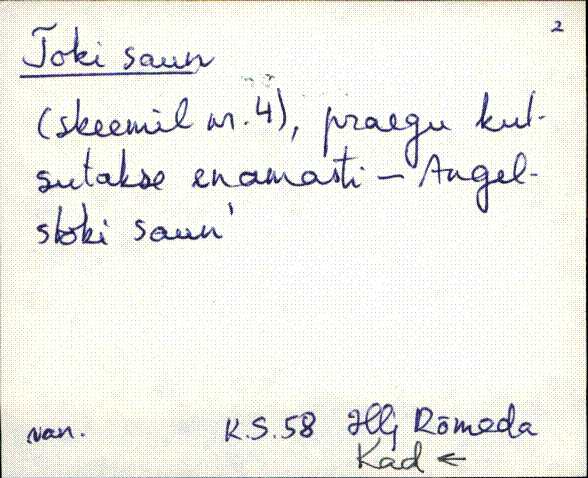 2
Toki saun
(skeemil nr. 4), praegu kut-
sutakse enamasti – Angel-
stoki saun'
van. K.S.58 Hlj Rõmeda
Kad ←